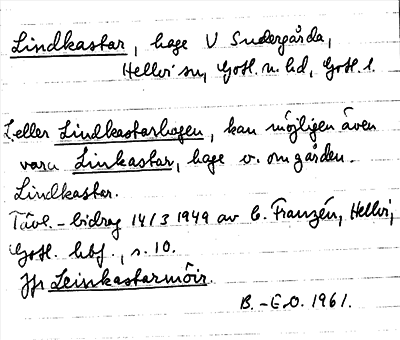 Lindkastar, hage V Sudergårda,
Hellvi sn, Gotl. n. hd, Gotl. l.
L. eller Lindkastarhagen, kan möjligen även
vara Linkastar, hage v. om gården.
Lindkastar.
Tävl.-bidrag 14/3 1949 av C. Franzén, Hellvi,
Gotl. hbf., s. 10.
Jfr Leinkastarmöir.
B.-E.O. 1961.